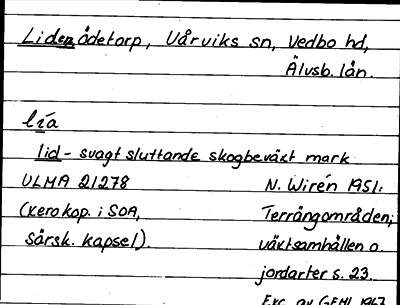 Liden ödetorp, Vårviks sn, Vedbo hd,
Älvsb. län.
lia
lid - svagt sluttande skogbeväxt mark
ULMA 21278 N. Wirén 1951:
(xerokop. i SOA, Terrängområden,
Särsk. kapsel) växtsamhällen o.
jordarter s. 23.
Exc. av GEHL 1967